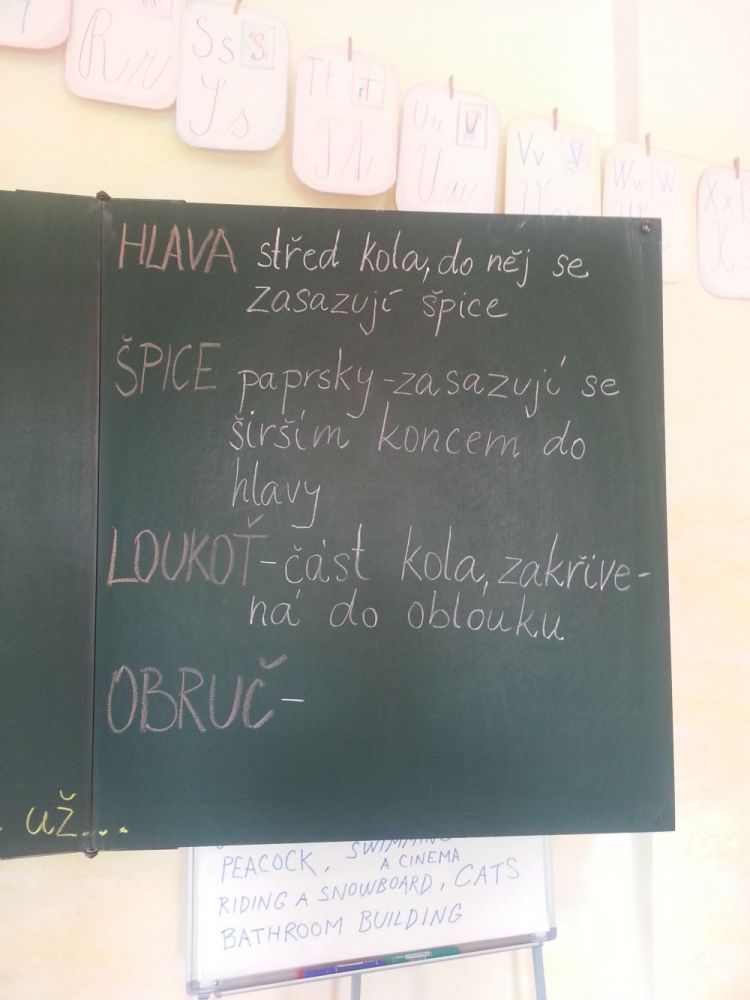 R
Ss S
Tt T
Uu U
Vv V
Ww W
Xx
HLAVA střed kola, do něj se
zasazují špice
ŠPICE paprsky - zasazují se
širším koncem do
hlavy
LOUKOŤ - část kola, zakřive-
ná do oblouku
OBRUČ -
už...
PEACOCK, SWIMMING
A CINEMA
RIDING A SNOWBOARD, CATS
BATHROOM BUILDING